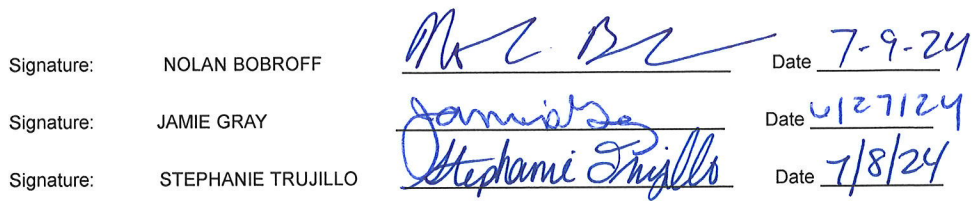 Signature: NOLAN BOBROFF Date 7-9-24
Signature: JAMIE GRAY Jamie Gray Date 6/27/24
Signature: STEPHANIE TRUJILLO Stephanie Trujillo Date 7/8/24